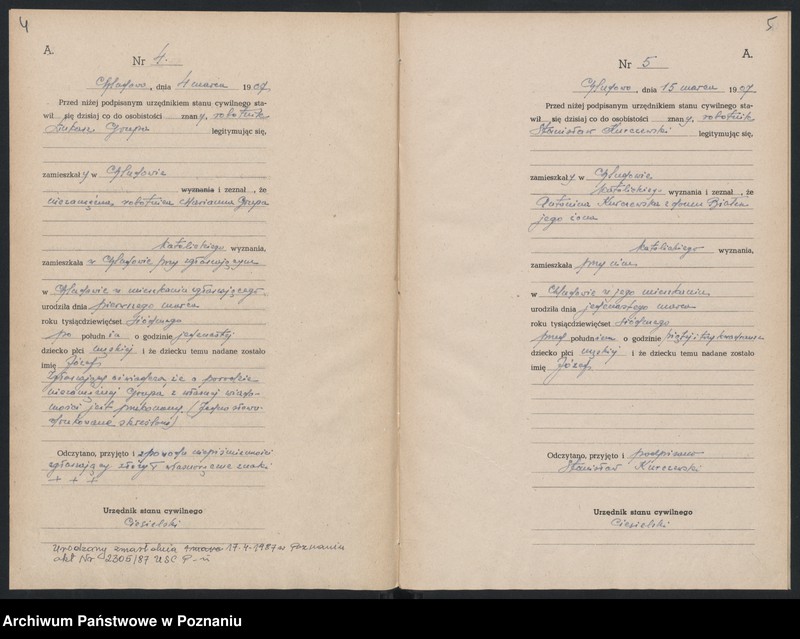 4
A.
Nr 4.
Chludowo, dnia 4 marca 1907
Przed niżej podpisanym urzędnikiem stanu cywilnego sta-
wił się dzisiaj co do osobistości znany, robotnik
Łukasz Grupa legitymując się,
zamieszkały w Chludowie
wyznania i zeznał, że
niezamężna robotnica Marianna Grupa
katolickiego wyznania,
zamieszkała w Chludowie przy zgłaszającym
w Chludowie w mieszkaniu zgłaszającego
urodziła dnia pierwszego marca
roku tysiącdziewięćset siódmego
po południu o godzinie jedenastej
dziecko płci męskiej i że dziecku temu nadane zostało
imię Józef
Zgłaszający oświadcza, że o porodzie
niezamężnej Grupa z własnej wiado-
mości jest przekonany (Jedno słowo
drukowane skreślono)
Odczytano, przyjęto i z powodu niepiśmienności
zgłaszający złożył własnoręczne znaki
+ + +
Urzędnik stanu cywilnego
Ciesielski
Urodzony zmarł dnia 17.4.1987 w Poznaniu
akt Nr 2305/87 USC P-ń
5
A.
Nr 5
Chludowo, dnia 15 marca 1907
Przed niżej podpisanym urzędnikiem stanu cywilnego sta-
wił się dzisiaj co do osobistości znany, robotnik
Stanisław Kurczewski legitymując się,
zamieszkały w Chludowie
katolickiego wyznania i zeznał, że
Antonina Kurczewska z domu Białas
jego żona
katolickiego wyznania,
zamieszkała przy nim
w Chludowie w jego mieszkaniu
urodziła dnia jedenastego marca
roku tysiącdziewięćset siódmego
przed południem o godzinie piątej i trzy kwadranse
dziecko płci męskiej i że dziecku temu nadane zostało
imię Józef
Odczytano, przyjęto i podpisano
Stanisław Kurczewski
Urzędnik stanu cywilnego
Ciesielski
Archiwum Państwowe w Poznaniu